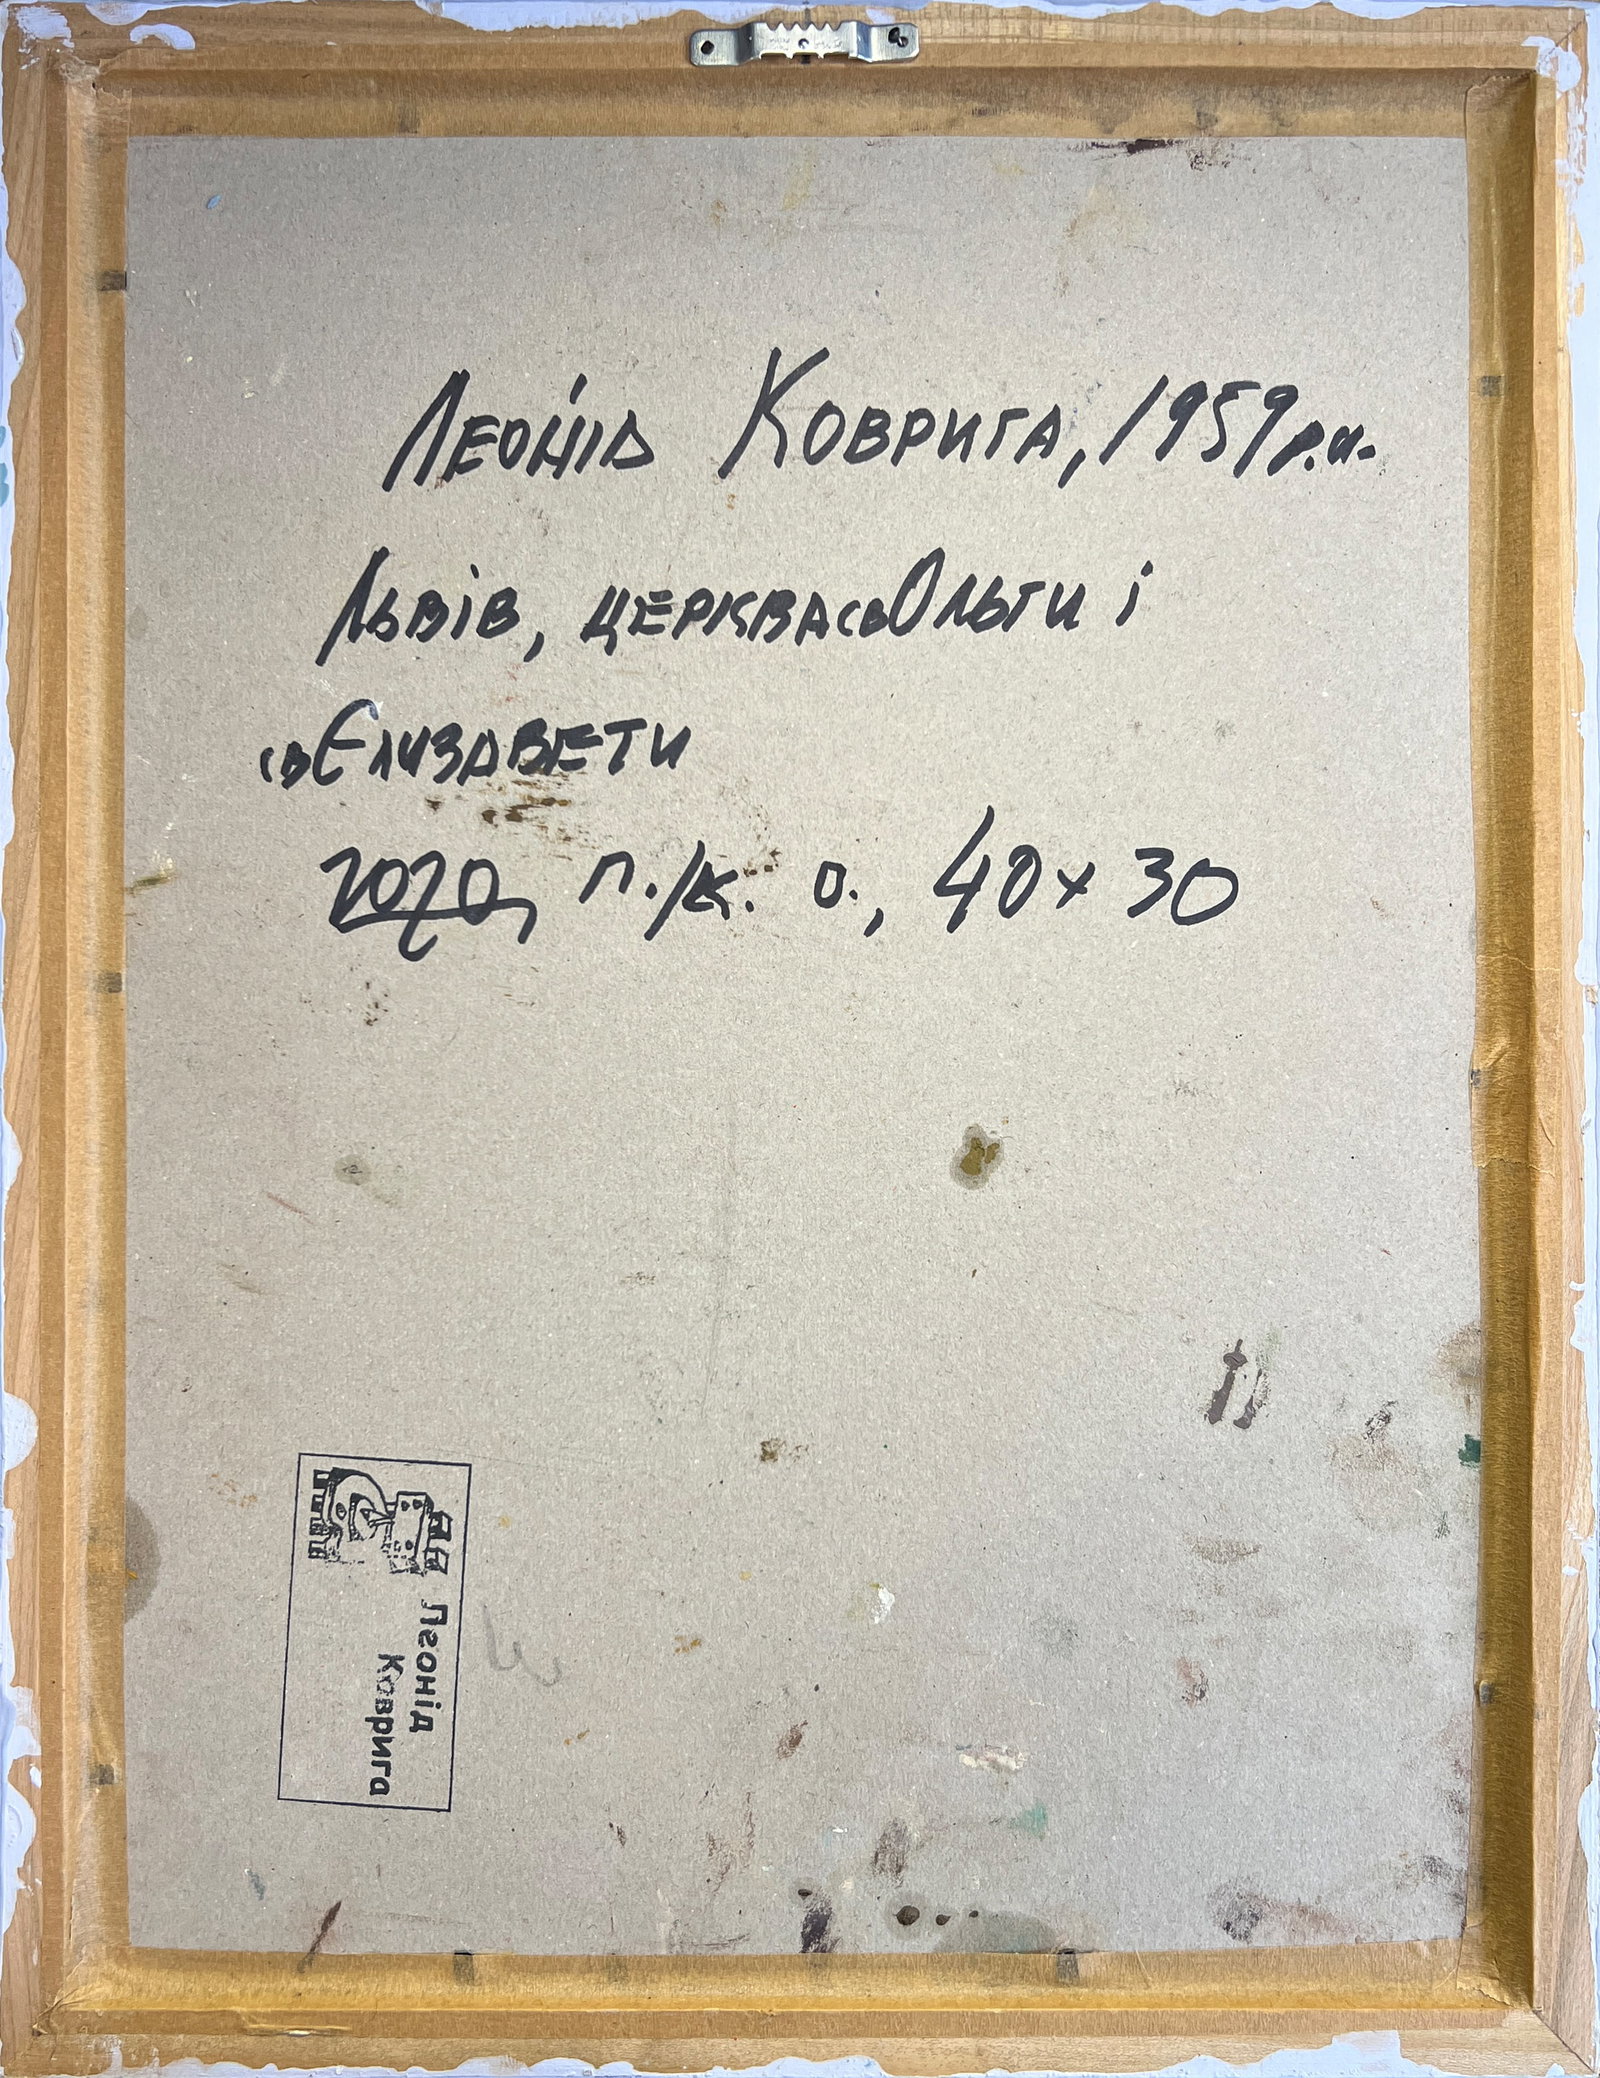 Леонід Коврига, 1959 р.н.
Львів, церква св Ольги і
св Єлизавети
2020, п./к. о., 40 x 30
Леонід
Коврига